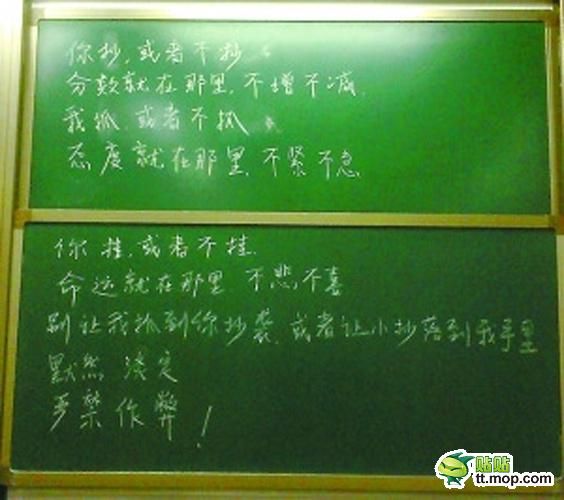 你抄,或者不抄
分数就在那里,不增不减.
我抓,或者不抓
态度就在那里,不紧不急
你挂,或者不挂.
命运就在那里 不悲,不喜
别让我抓到你抄袭,或者让小抄落到我手里
默然 淡定
严禁作弊!
贴贴
tt.mop.com